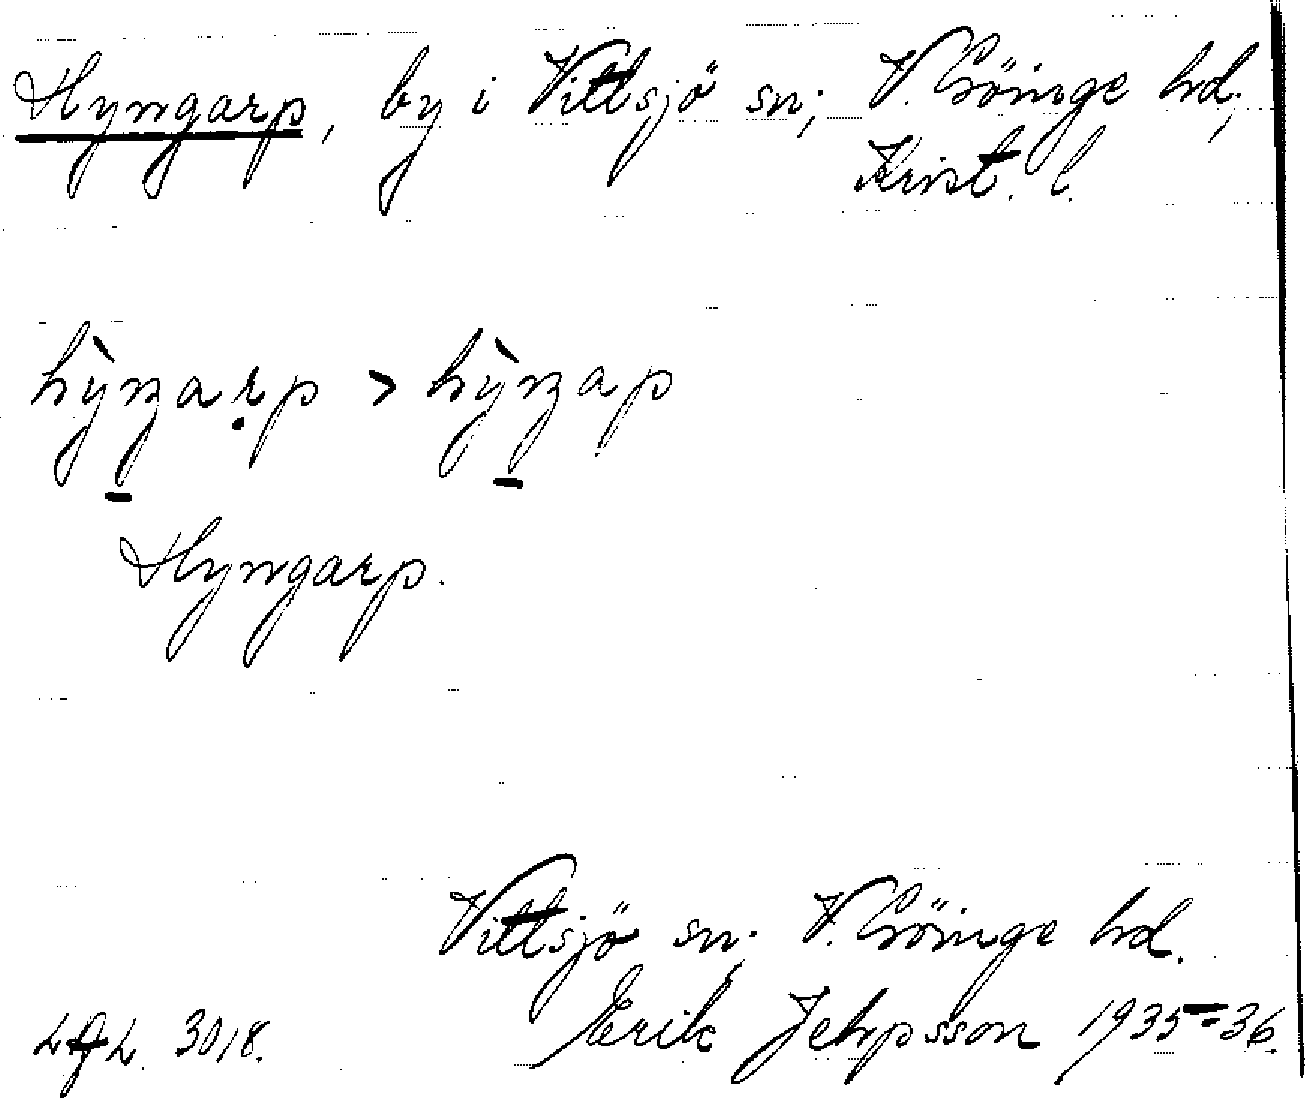 Hyngarp, by i Vittsjö sn; V. Göinge hd;
Krist. l.
hỳŋarp > hỳŋap
Hyngarp.
Vittsjö sn; V. Göinge hd.
LAL. 3018. Erik Jeppsson 1935-36.